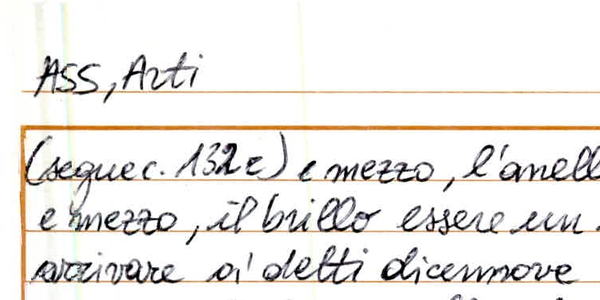 ASS, Arti
(segue c. 132r) e mezzo, l'anell
e mezzo, il brillo essere un
arrivare a' detti dicennove